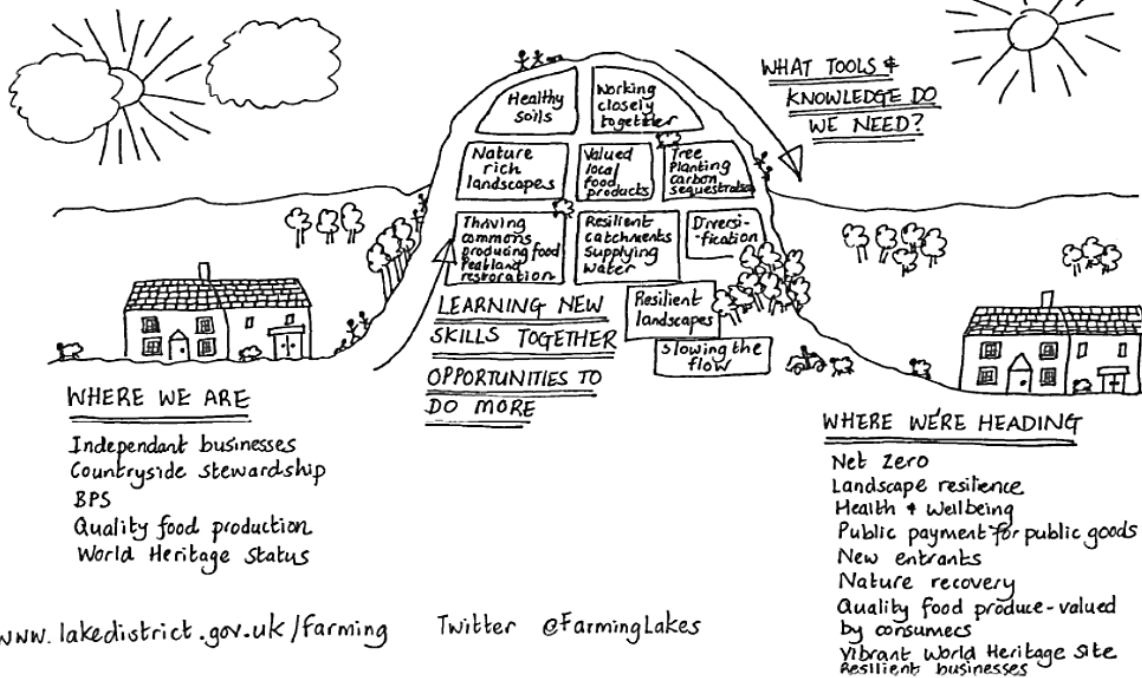 WHAT TOOLS &
KNOWLEDGE DO
WE NEED?
Healthy
soils
Working
closely
together
Nature
rich
landscapes
Valued
local
food
products
Tree
Planting
carbon
sequestration
Thriving
commons
producing food
Peatland
restoration
Resilient
catchments
Supplying
water
Diversi-
fication
Resilient
landscapes
Slowing the
flow
LEARNING NEW
SKILLS TOGETHER
OPPORTUNITIES TO
DO MORE
WHERE WE ARE
Independant businesses
Countryside stewardship
BPS
Quality food production
World Heritage Status
WHERE WE'RE HEADING
Net Zero
Landscape resilience
Health & Wellbeing
Public payment for public goods
New entrants
Nature recovery
Quality food produce-valued
by consumers
Vibrant World Heritage Site
Resilient businesses
www.lakedistrict.gov.uk/farming Twitter @FarmingLakes